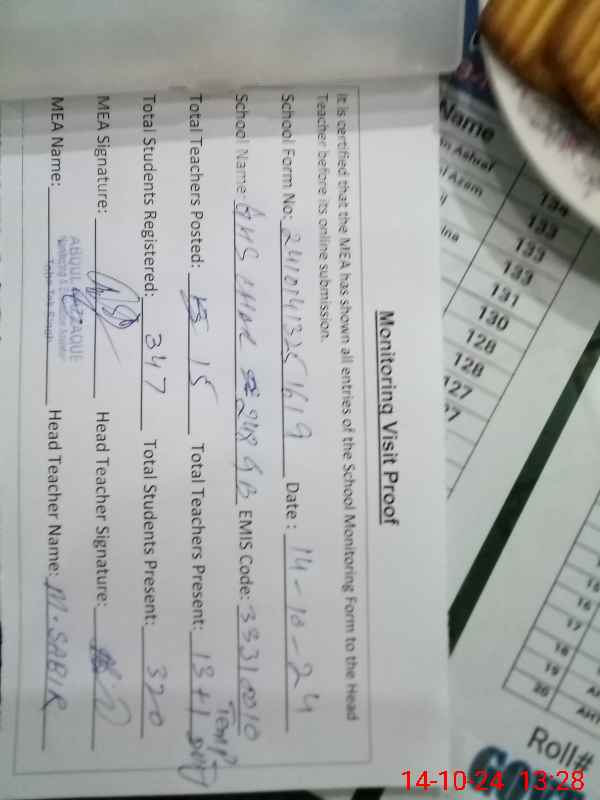 Monitoring Visit Proof
It is certified that the MEA has shown all entries of the School Monitoring Form to the Head
Teacher before its online submission.
School Form No: 24101413251619 Date : 14-10-24
School Name: GHS 248 GB EMIS Code: 33310010
Total Teachers Posted: 15 Total Teachers Present: 13+1 Temp Duty
Total Students Registered: 347 Total Students Present: 320
MEA Signature: Head Teacher Signature:
MEA Name: ABDUL RAZZAQUE Head Teacher Name: M. SABIR
Toba Tek Singh
Name
Ashraf
Azam
134
133
133
133
131
130
128
128
127
15
16
17
18
19
20
Roll#
14-10-24 13:28